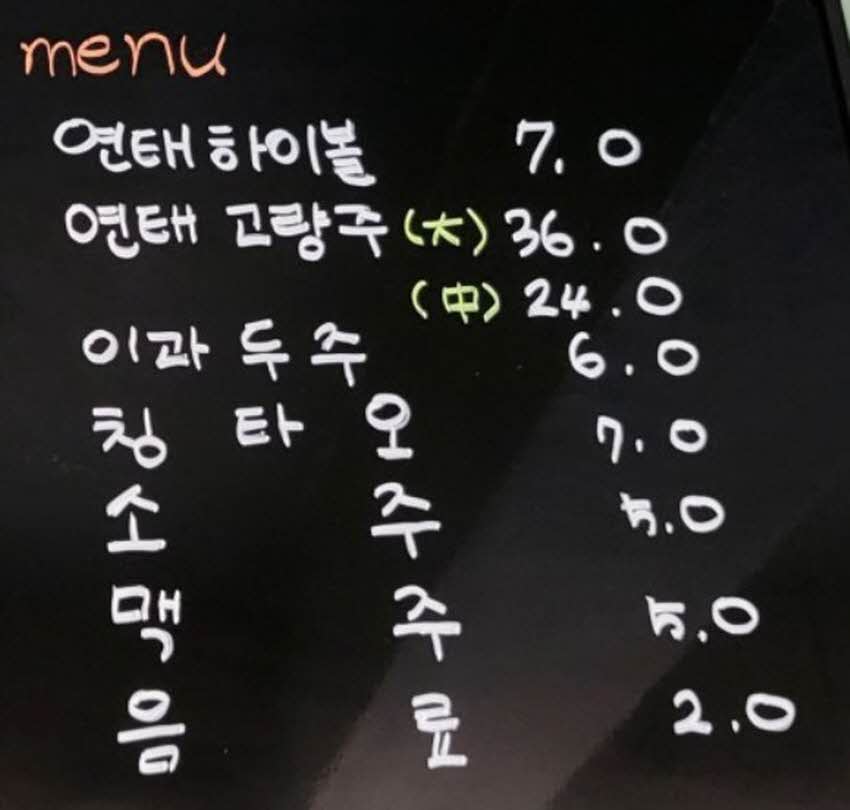 menu
연태하이볼 7.0
연태 고량주(大) 36.0
(中) 24.0
이과두주 6.0
칭타오 7.0
소주 5.0
맥주 5.0
음료 2.0